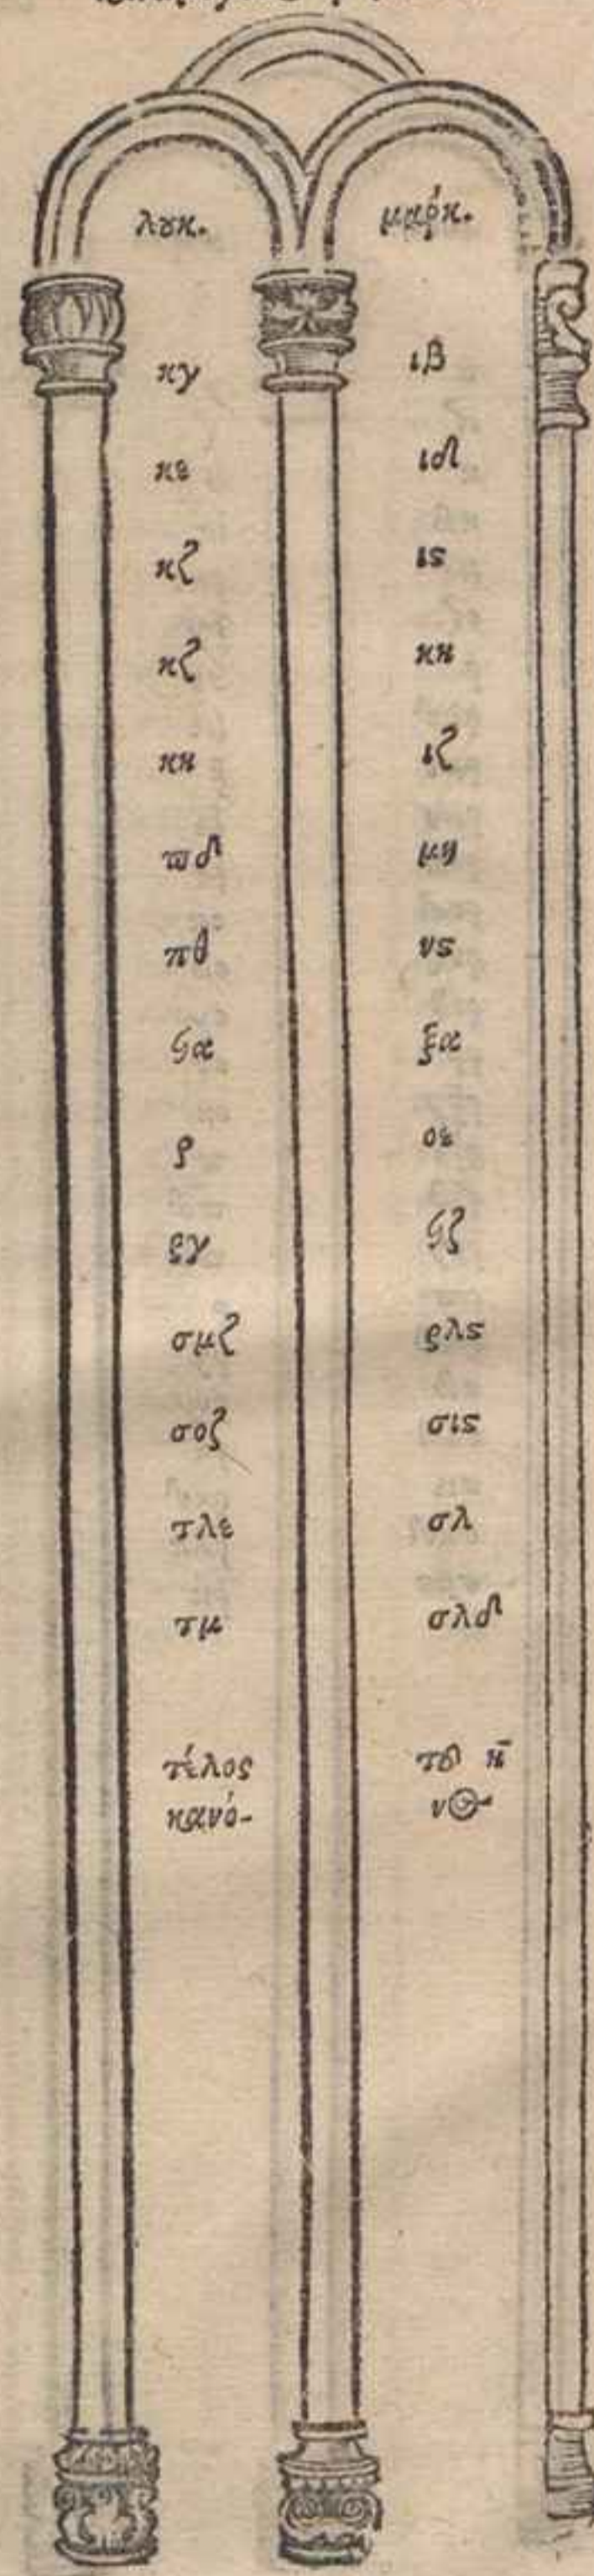 λȣκ. μάρκ.
κγ ιβ
κε ιδ
κζ ις
κζ κη
κη ιζ
πδ μη
πθ νς
ϟα ξα
ρ οε
ργ ϟζ
σμζ ρλς
σοζ σις
τλε σλ
τμ σλδ
τέλος τȣ͂ η̄
κανό- νος